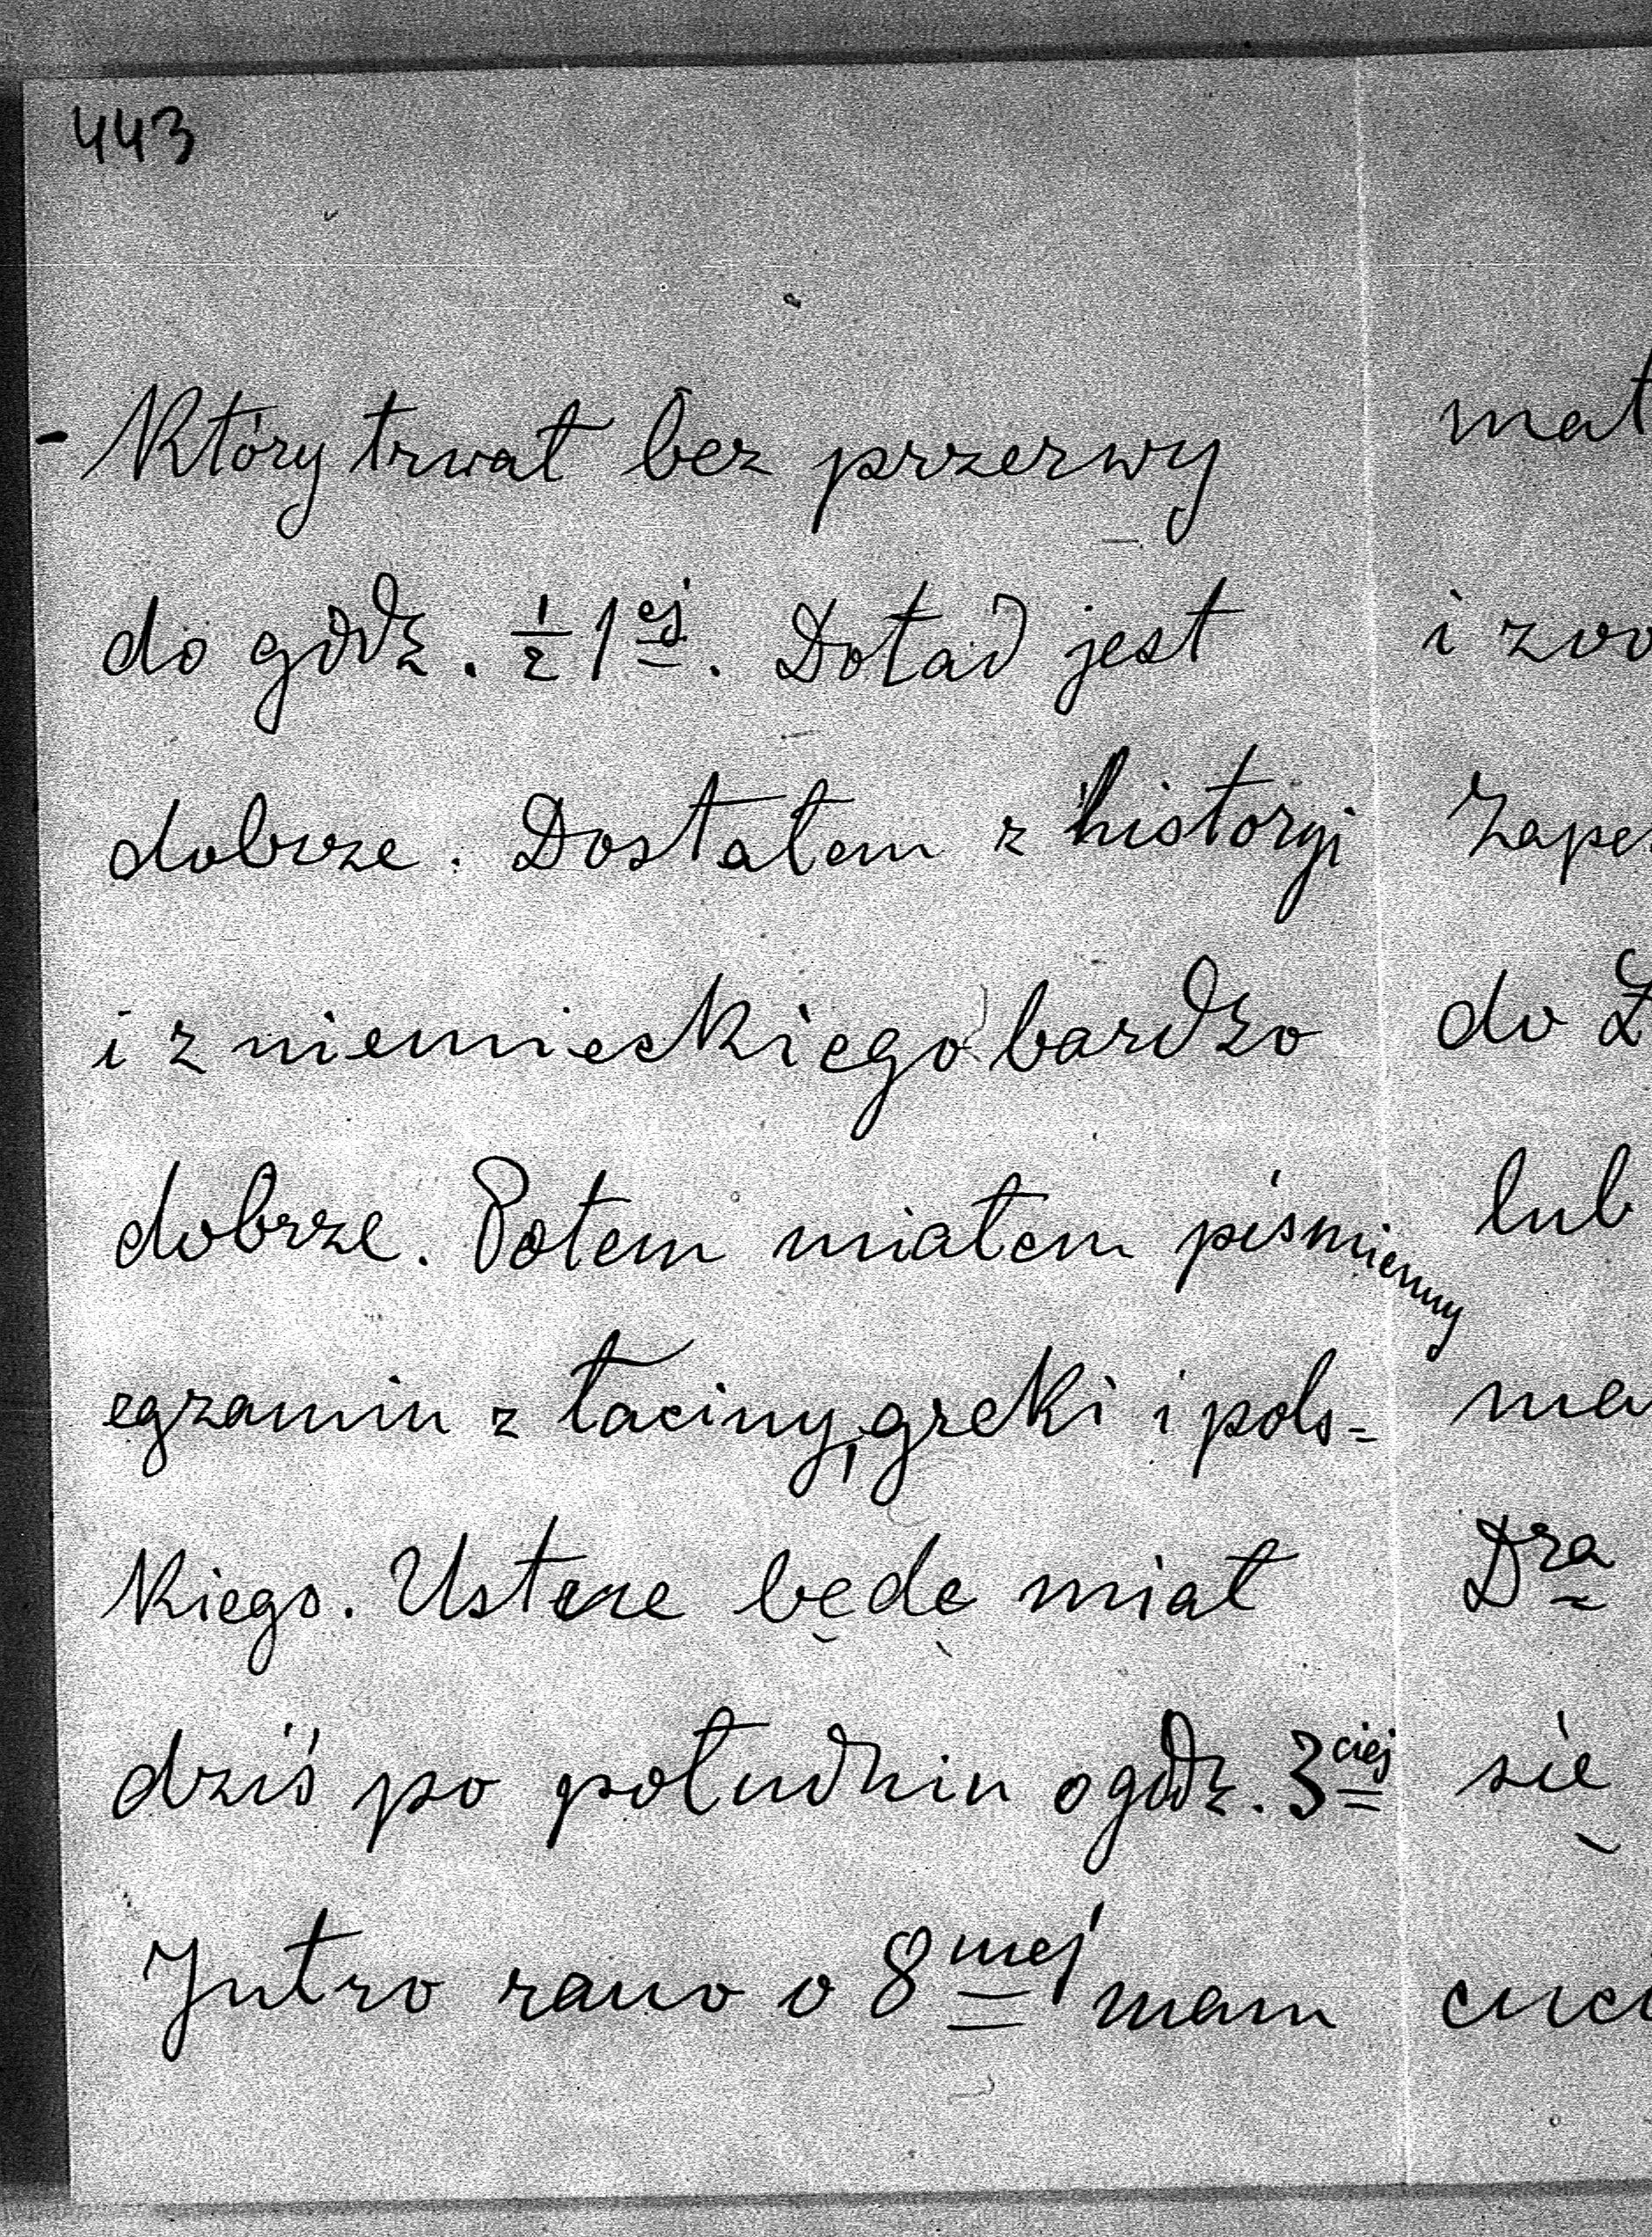 443
- Który trwał bez przerwy
do godz. ½ 1ej. Dotąd jest
dobrze. Dostałem z historyi
i z niemieckiego bardzo
dobrze. Potem miałem piśmienny
egzamin z łaciny, greki i pols=
kiego. Ustne będę miał
dziś po południu o godz. 3ciej
Jutro rano o 8mej mam
mat
i
do
lub
Dra
się